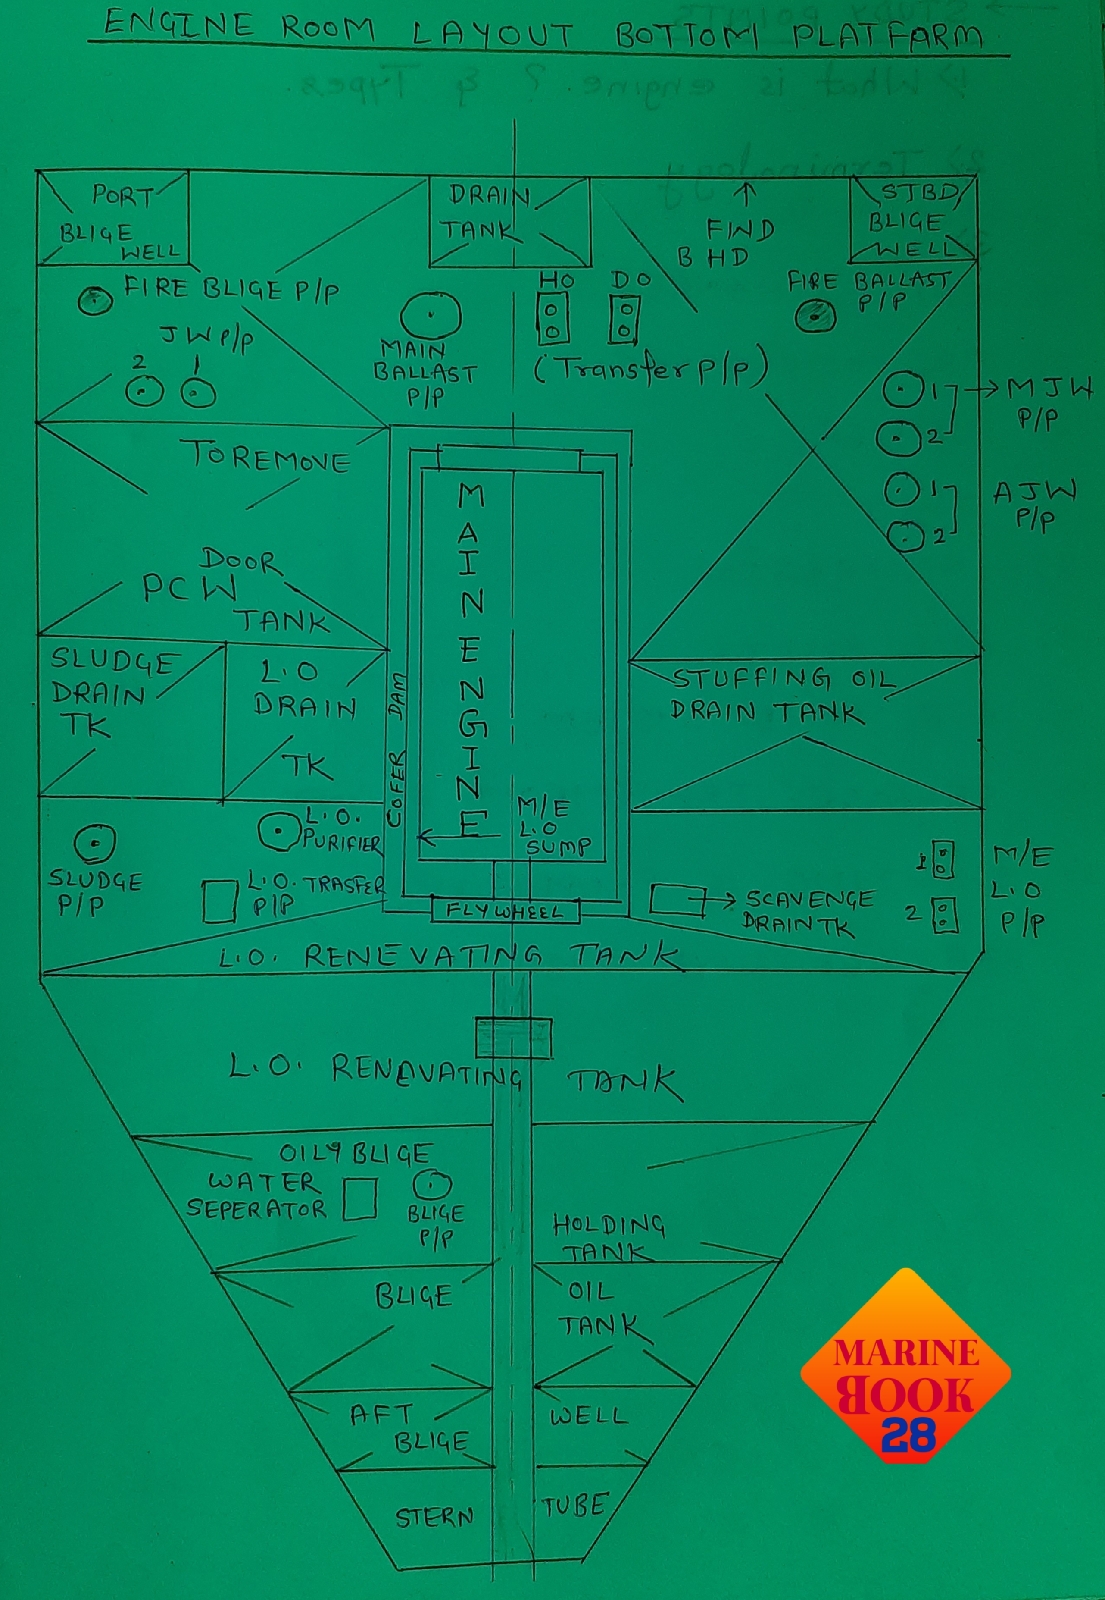 ENGINE ROOM LAYOUT BOTTOM PLATFARM
PORT
BLIGE
WELL
DRAIN
TANK
FIND
B HD
STBD
BLIGE
WELL
FIRE BLIGE P/P
JW P/P
2 1
MAIN
BALLAST
P/P
HO DO
(Transfer P/P)
FIRE BALLAST
P/P
1
2
MJW
P/P
1
2
AJW
P/P
TO REMOVE
DOOR
PCW
TANK
SLUDGE
DRAIN
TK
L.O
DRAIN
TK
COFER DAM
MAIN ENGINE
M/E
L.O
SUMP
STUFFING OIL
DRAIN TANK
SLUDGE
P/P
L.O.
PURIFIER
L.O. TRASFER
P/P
FLYWHEEL
SCAVENGE
DRAIN TK
1
2
M/E
L.O
P/P
L.O. RENEVATING TANK
L.O. RENOVATING TANK
OILY BLIGE
WATER
SEPERATOR
BLIGE
P/P
HOLDING
TANK
BLIGE
OIL
TANK
AFT
BLIGE
WELL
STERN TUBE
MARINE
BOOK
28